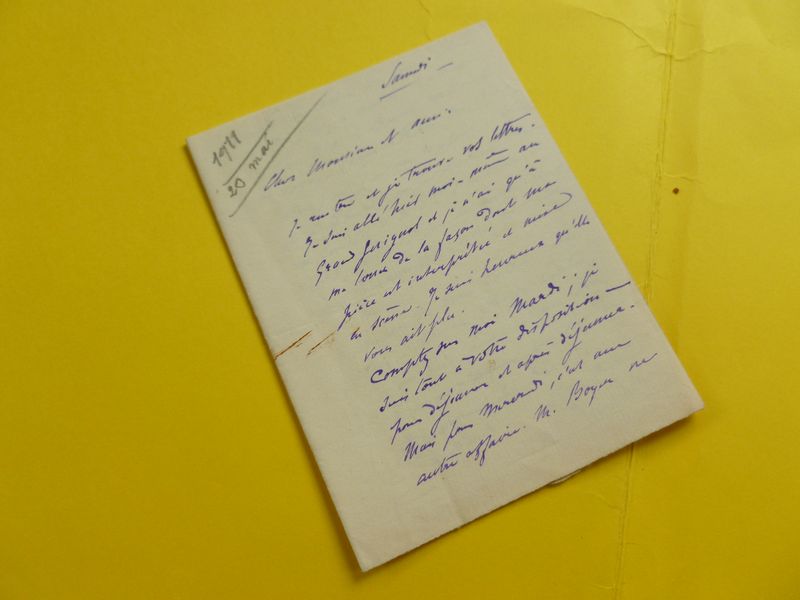 Samedi
1911
20 mai
Cher Monsieur et ami.
Je rentre et je trouve vos lettres.
Je suis allé hier moi-même au
Grand Guignol et je n'ai qu'à
me louer de la façon dont ma
pièce est interprétée et mise
en scène. Je suis heureux qu'elle
vous ait plu.
Comptez sur moi Mardi ; je
suis tout à votre disposition
pour déjeuner et après déjeuner.
Mais pour Mercredi, c'est une
autre affaire. M. Boyer ne